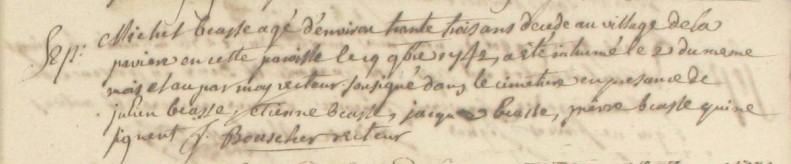 Sep: Michel beasse agé d'environ trante trois ans decede au village de la
paviere en cette paroisse le 19bre 1742, a été inhumé le 2 du meme
mois et an par moy recteur sousigné dans le cimetiere en presance de
julien beasse, etienne beasse, jacque beasse, pierre beasse qui ne
signent J. Bouscher recteur